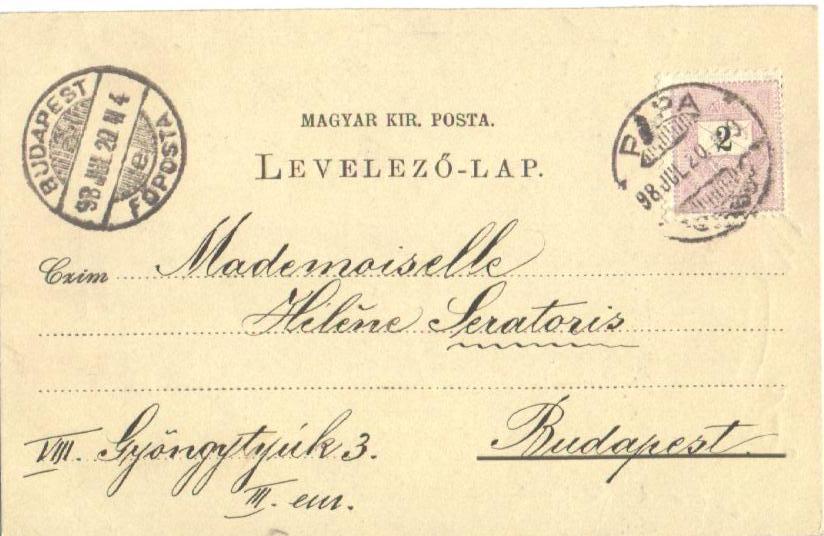 MAGYAR KIR. POSTA.
LEVELEZŐ-LAP.
BUDAPEST
98 JUL 20 N 4
FŐPOSTA
PÁPA
98 JUL 20
2
Czim Mademoiselle
Hélène Seratoris
VIII. Gyöngytyúk 3. Budapest.
III. em.